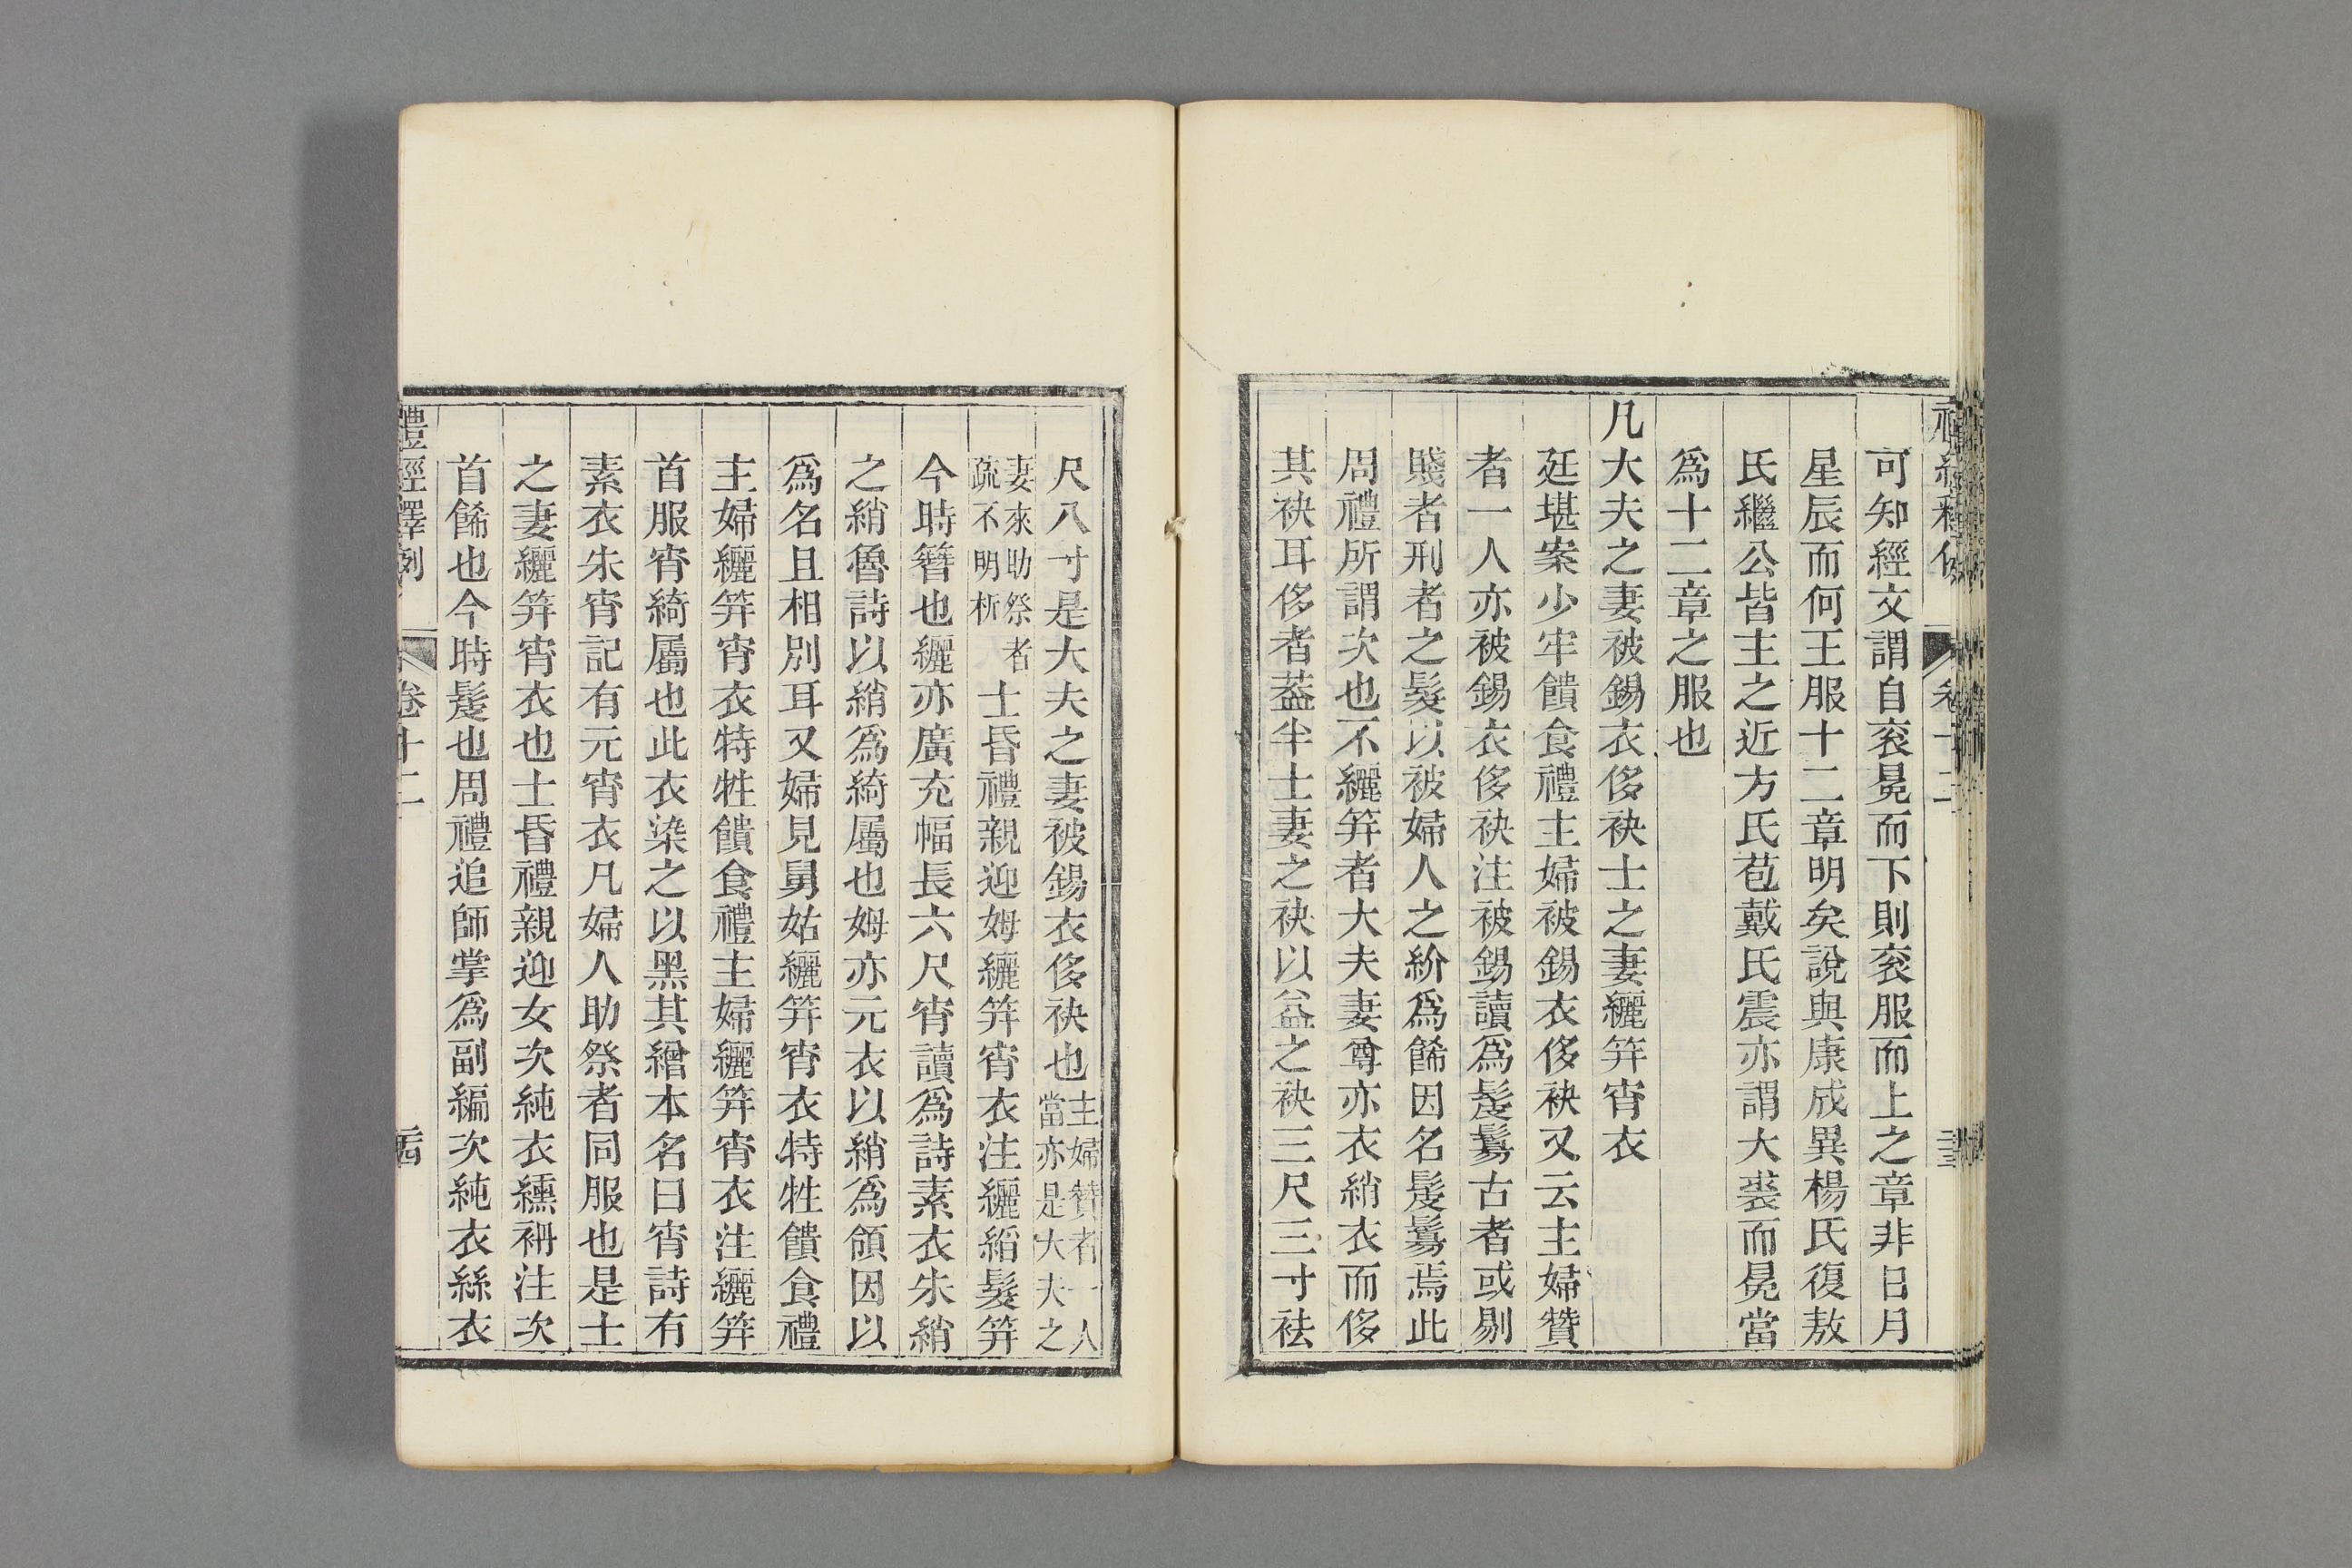 可知經文謂自衮冕而下則衮服而上之章非日月
星辰而何王服十二章明矣說與康成異楊氏復敖
氏繼公皆主之近方氏苞戴氏震亦謂大裘而冕當
爲十二章之服也
凡大夫之妻被錫衣侈袂士之妻纚筓宵衣
廷堪案少牢饋食禮主婦被錫衣侈袂又云主婦贊
者一人亦被錫衣侈袂注被錫讀爲髲鬄古者或剔
賤者刑者之髮以被婦人之紒爲餙因名髲鬄焉此
周禮所謂次也不纚筓者大夫妻尊亦衣綃衣而侈
其袂耳侈者葢半士妻之袂以益之袂三尺三寸袪
尺八寸是大夫之妻被錫衣侈袂也主婦贊者一人當亦是大夫之
妻來助祭者疏不明析士昏禮親迎姆纚筓宵衣注纚縚髮筓
今時簪也纚亦廣充幅長六尺宵讀爲詩素衣朱綃
之綃魯詩以綃爲綺屬也姆亦元衣以綃爲領因以
爲名且相別耳又婦見舅姑纚筓宵衣特牲饋食禮
主婦纚筓宵衣特牲饋食禮主婦纚筓宵衣注纚筓
首服宵綺屬也此衣染之以黑其繒本名曰宵詩有
素衣朱宵記有元宵衣凡婦人助祭者同服也是士
之妻纚筓宵衣也士昏禮親迎女次純衣纁袡注次
首餙也今時髲也周禮追師掌爲副編次純衣絲衣
禮經釋例
卷十二